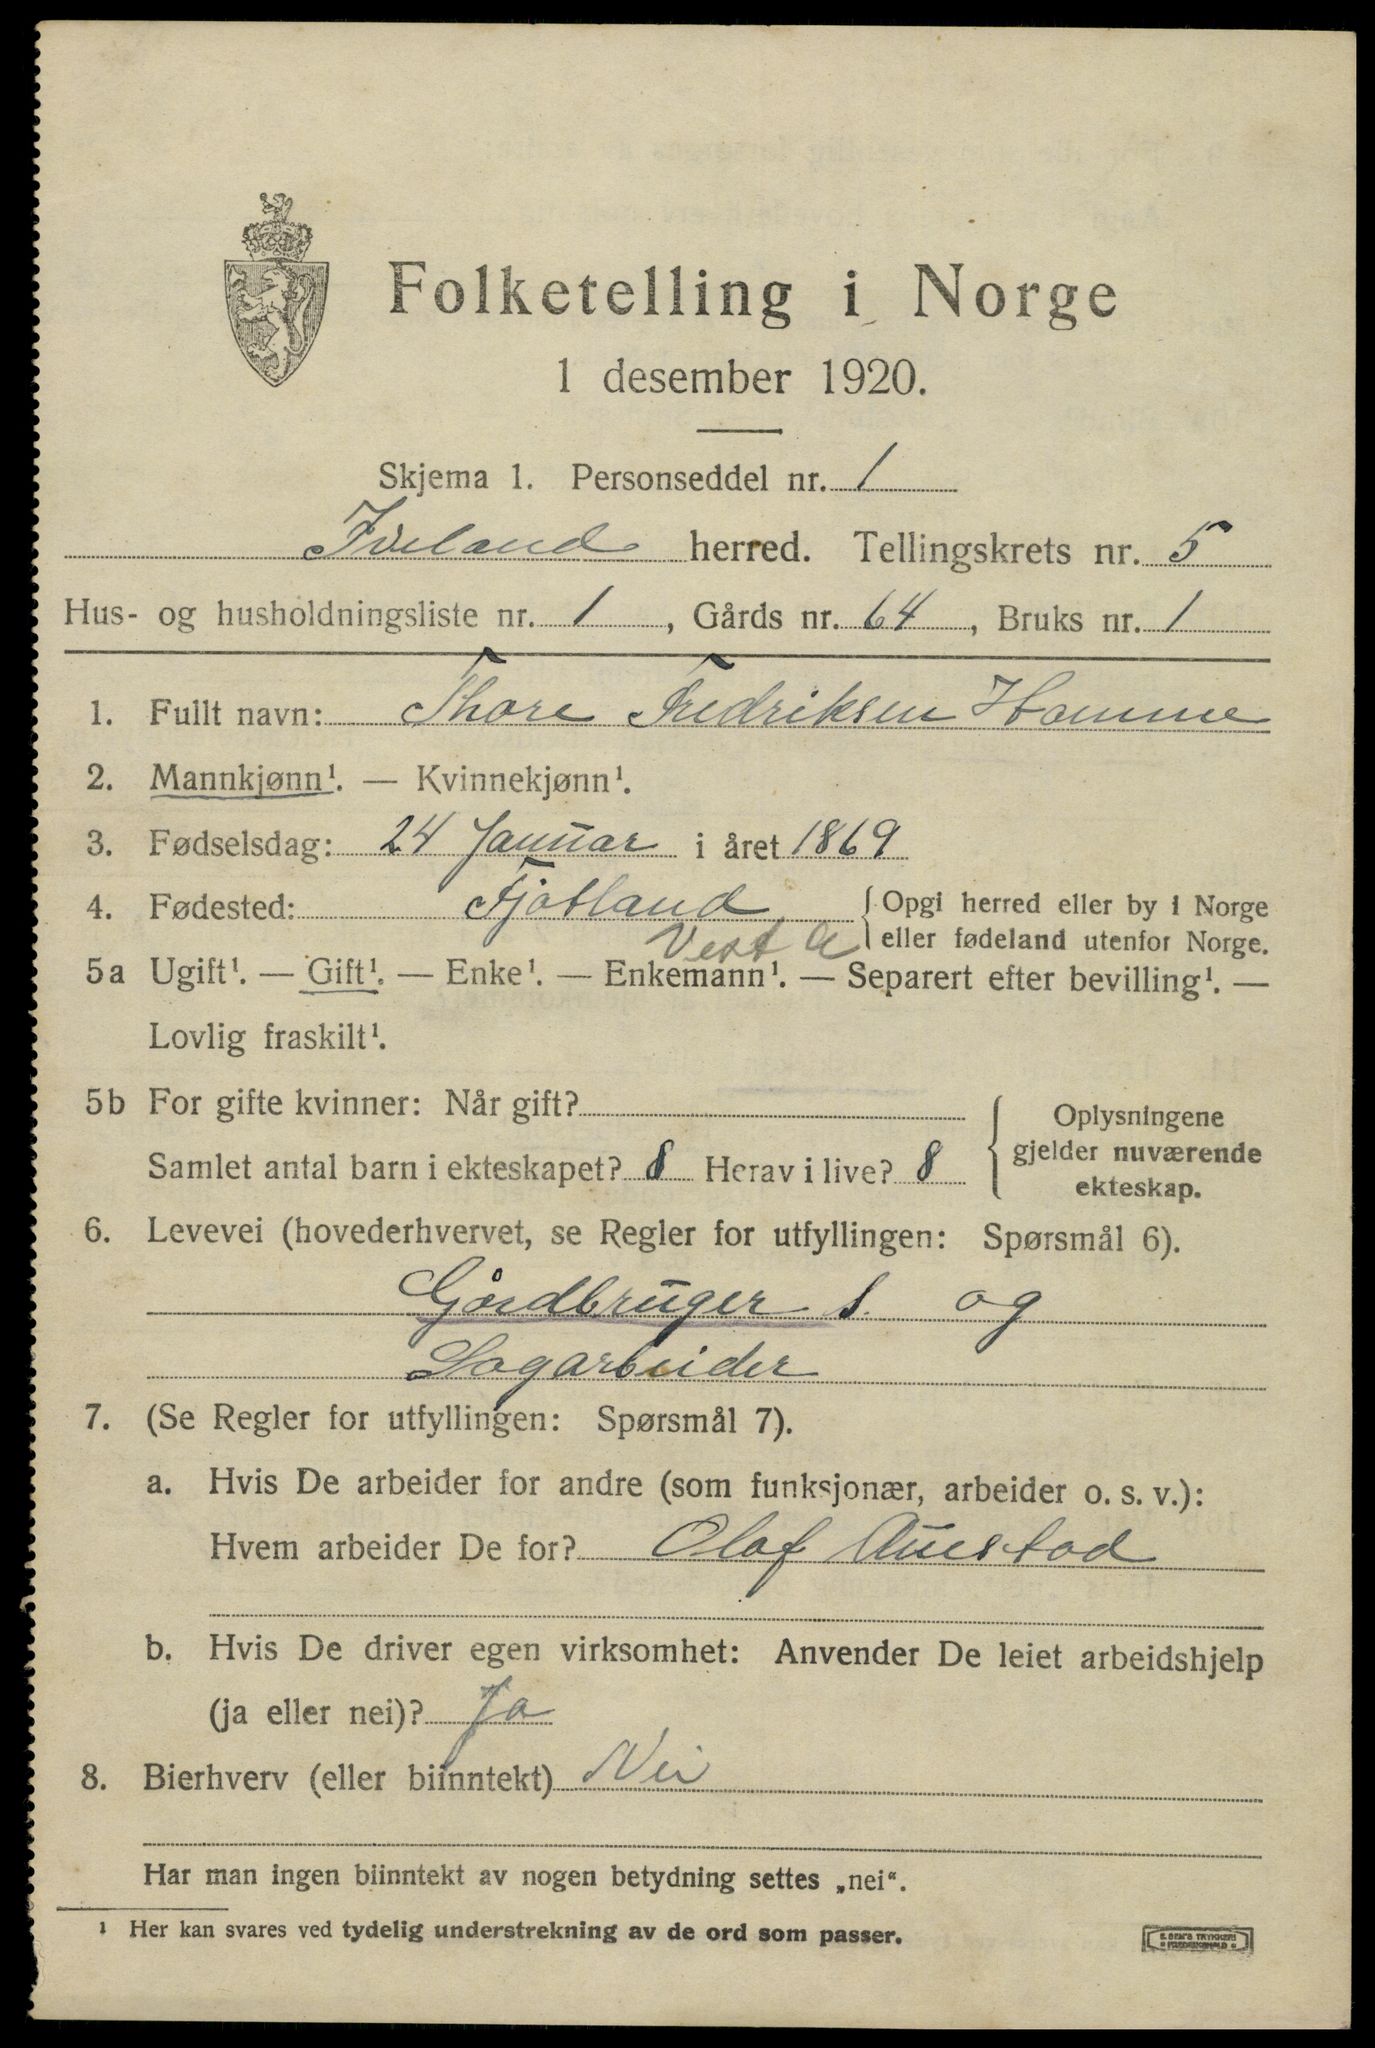 Folketelling i Norge
1 desember 1920.
Skjema 1. Personseddel nr. 1
Iveland herred. Tellingskrets nr. 5
Hus- og husholdningsliste nr. 1, Gårds nr. 64, Bruks nr. 1
1. Fullt navn: Thore Fredriksen Homme
2. Mannkjønn¹. — Kvinnekjønn¹.
3. Fødselsdag: 24 Januar i året 1869
4. Fødested: Fjotland { Opgi herred eller by i Norge
Vest A eller fødeland utenfor Norge.
5a Ugift¹. — Gift¹. — Enke¹. — Enkemann¹. — Separert efter bevilling¹. —
Lovlig fraskilt¹.
5b For gifte kvinner: Når gift?
Samlet antal barn i ekteskapet? 8 Herav i live? 8
{ Oplysningene
gjelder nuværende
ekteskap.
6. Levevei (hovederhvervet, se Regler for utfyllingen: Spørsmål 6).
Gårdbruger s. og
Sagarbeider
7. (Se Regler for utfyllingen: Spørsmål 7).
a. Hvis De arbeider for andre (som funksjonær, arbeider o. s. v.):
Hvem arbeider De for? Olaf Austad
b. Hvis De driver egen virksomhet: Anvender De leiet arbeidshjelp
(ja eller nei)? Ja
8. Bierhverv (eller biinntekt) Nei
Har man ingen biinntekt av nogen betydning settes „nei“.
¹ Her kan svares ved tydelig understrekning av de ord som passer.